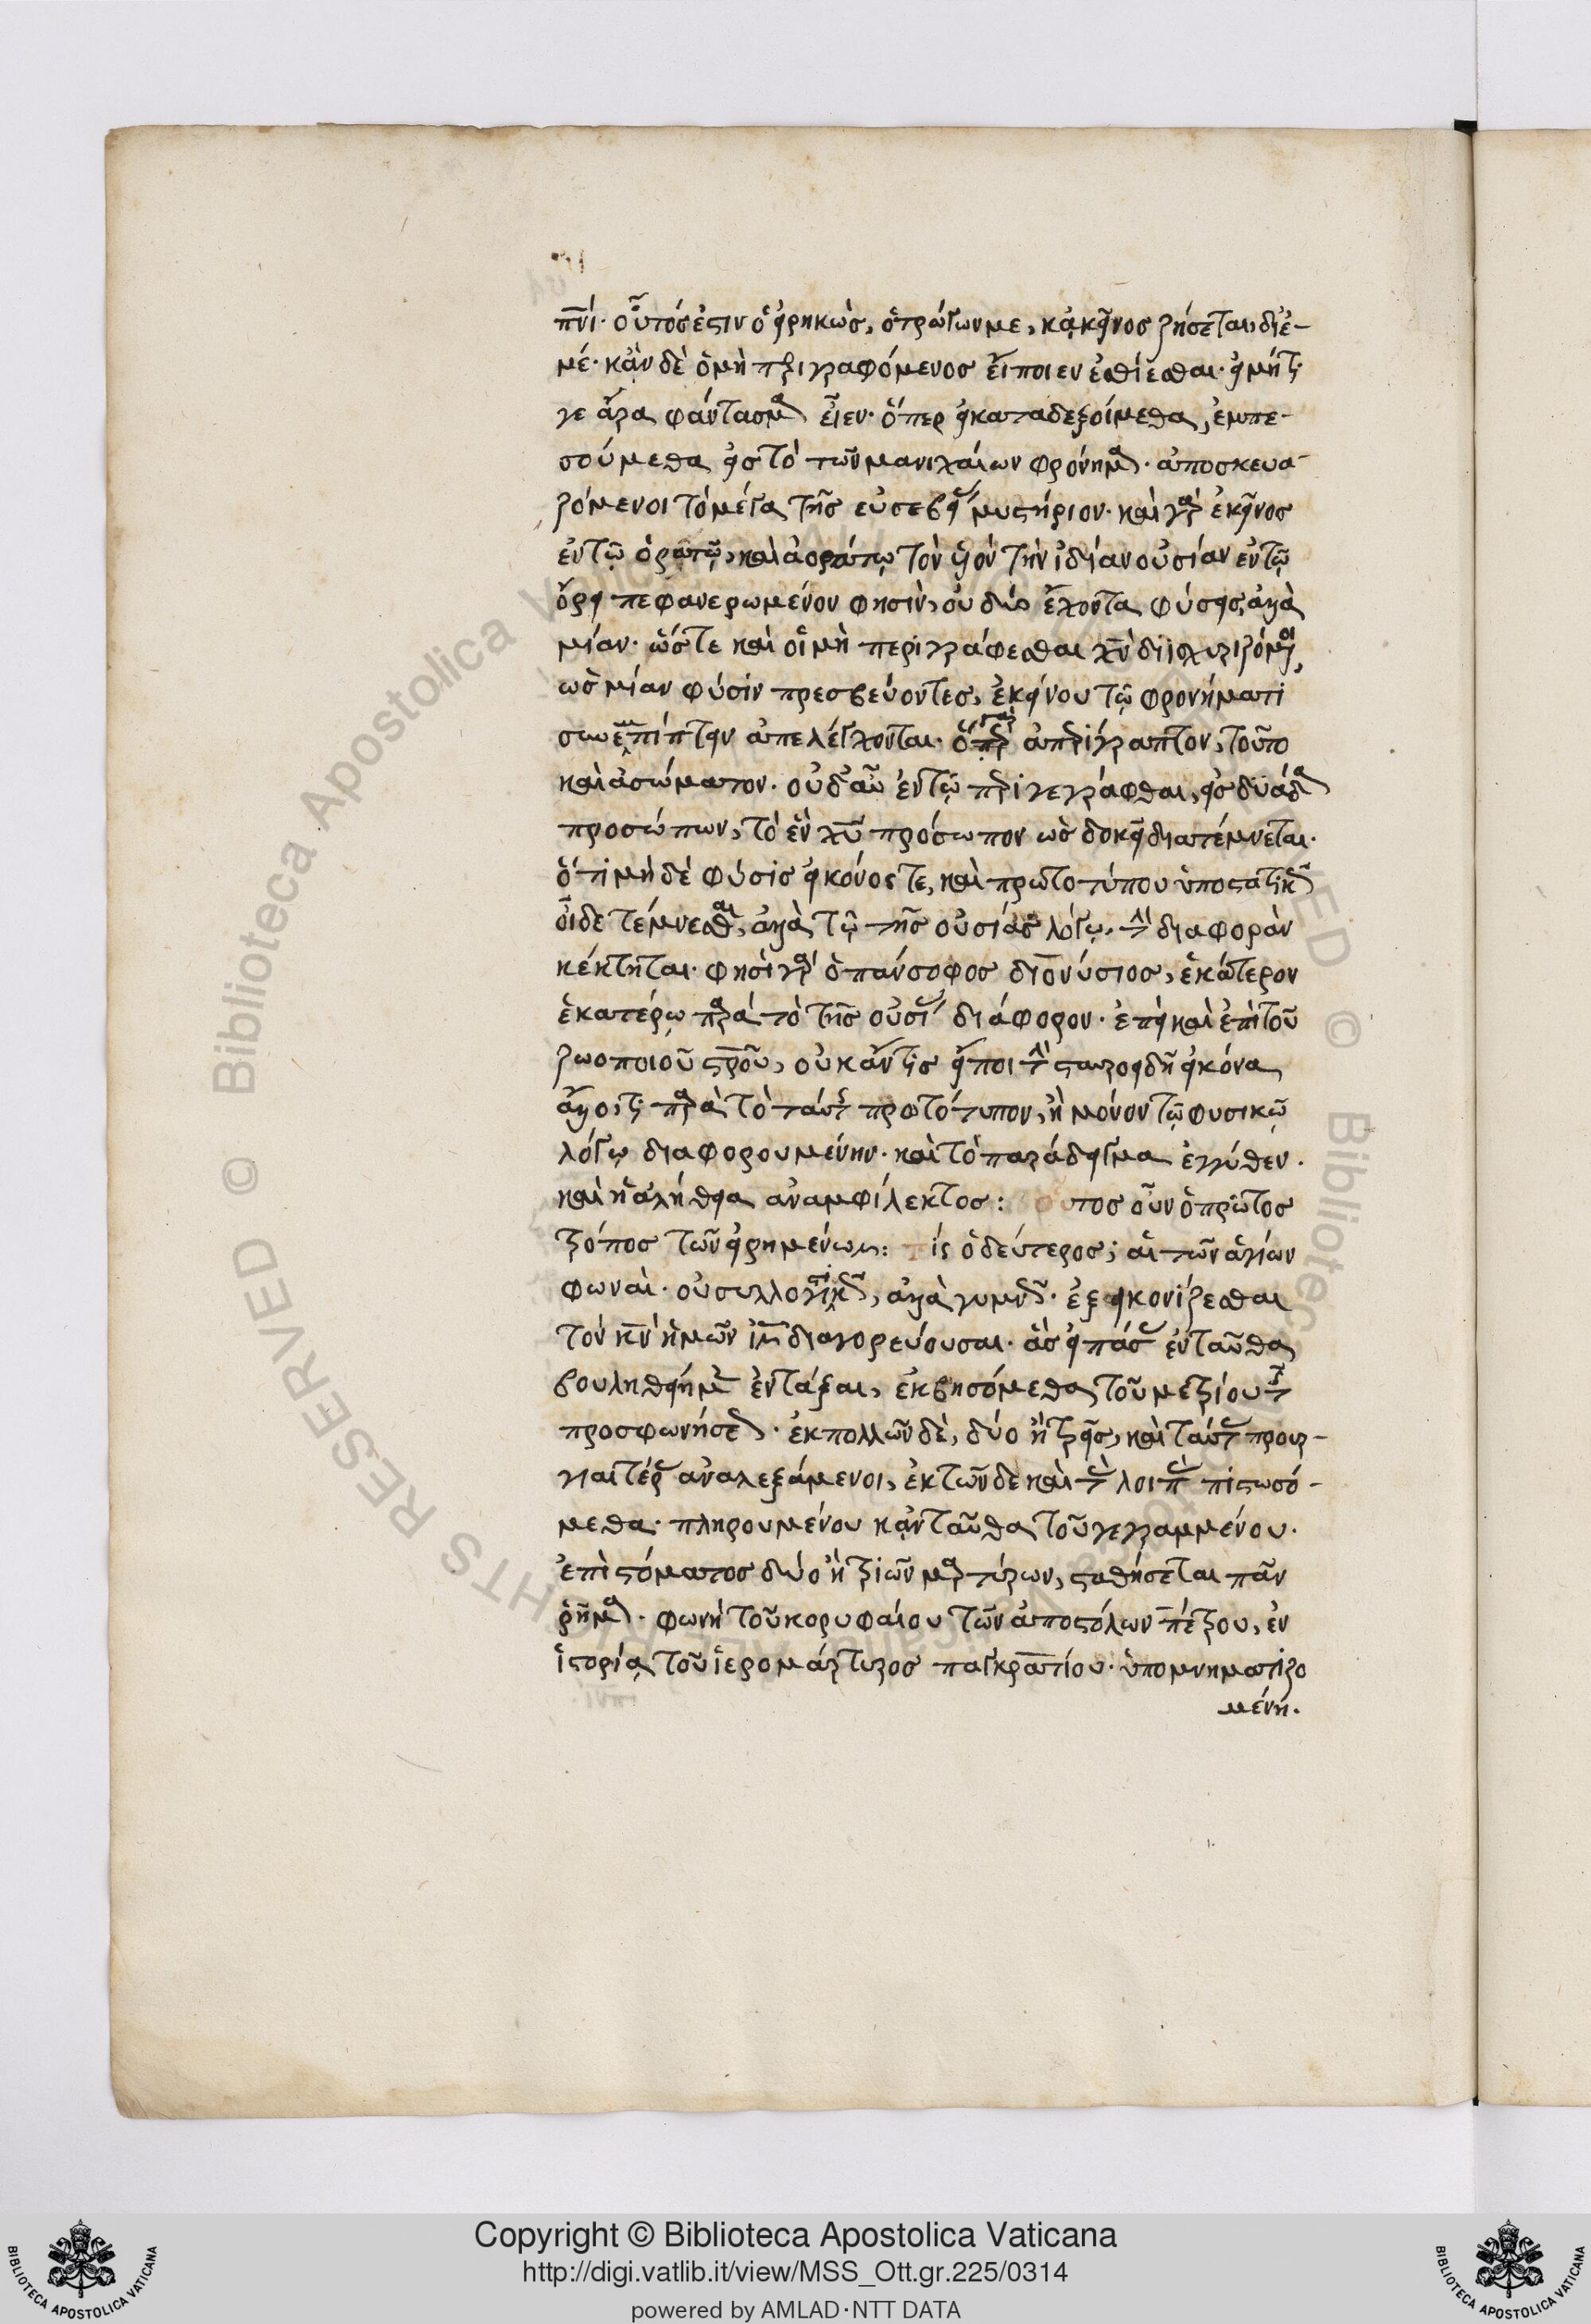 π̅ν̅ί· οὗτός ἐστιν ὁ εἰρηκὼς, ὁ τρώγων με, κἀκεῖνος ζήσεται, δι' ἐ-
μέ· κἂν δὲ ὁ μὴ περιγραφόμενος εἴποιεν ἐσθίεσθαι· εἰ μήτι
γε ἄρα φάντασμα εἶεν· ὅπερ εἰ καταδεξοίμεθα, ἐμπε-
σούμεθα εἰς τὸ τῶν μανιχαίων φρόνημα· ἀποσκευα-
ζόμενοι τὸ μέγα τῆς εὐσεβείας μυστήριον· καὶ γὰρ ἐκεῖνος
ἐν τῷ ὁρατῷ, καὶ ἀοράτῳ τὸν υἱὸν τὴν ἰδίαν οὐσίαν ἐν τῷ
ὄρει πεφανερωμένον φησὶν, οὐ δύο ἔχοντα φύσεις, ἀλλὰ
μίαν· ὥστε καὶ οἱ μὴ περιγράφεσθαι χ̅ν̅ διισχυριζόμενοι,
ὡς μίαν φύσιν πρεσβεύοντες, ἐκείνου τῷ φρονήματι
συνεμπίπτειν ἀπελέγχονται· ὅπερ γὰρ ἀπερίγραπτον, τοῦτο
καὶ ἀσώματον· οὐδ' αὖ ἐν τῷ περιγεγράφθαι, εἰς δυάδα
προσώπων, τὸ ἓν χ̅υ̅ πρόσωπον ὡς δοκεῖ διατέμνεται·
ὅτι μὴ δὲ φύσις εἰκόνος τε, καὶ πρωτοτύπου ὑποστατικῶς
οἶδε τέμνεσθαι, ἀλλὰ τῷ τῆς οὐσίας λόγῳ, τὴν διαφορὰν
κέκτηται· φησὶ γὰρ ὁ πάνσοφος διονύσιος, ἑκάτερον
ἑκατέρῳ παρὰ τὸ τῆς οὐσίας διάφορον· ἐπεὶ καὶ ἐπὶ τοῦ
ζωοποιοῦ σ̅ρ̅ο̅ῦ, οὐκ ἄν τις εἴποι τὴν σταυροειδῆ εἰκόνα
ἄλλο τι παρὰ τὸ ταύτης πρωτότυπον, ἢ μόνον τῷ φυσικῷ
λόγῳ διαφορουμένην· καὶ τὸ παράδειγμα ἐγγύθεν·
καὶ ἡ ἀλήθεια ἀναμφίλεκτος: οὗτος οὖν ὁ πρῶτος
τρόπος τῶν εἰρημένων: τίς ὁ δεύτερος; αἱ τῶν ἁγίων
φωναὶ· οὐ συλλογιστικῶς, ἀλλὰ γυμνῶς· ἐξεικονίζεσθαι
τὸν κ̅ν̅ ἡμῶν ι̅ν̅ διαγορεύουσαι· ἃς εἰ πάσας ἐνταῦθα
βουληθείημεν ἐντάξαι, ἐκβησόμεθα τοῦ μετρίου τῆς
προσφωνήσεως· ἐκ πολλῶν δὲ, δύο ἢ τρεῖς, καὶ ταύτας προυρ-
γιαιτέρας ἀναλεξάμενοι, ἐκ τῶνδε καὶ τὰς λοιπὰς πιστωσό-
μεθα· πληρουμένου κἀνταῦθα τοῦ γεγραμμένου·
ἐπὶ στόματος δύο ἢ τριῶν μαρτύρων, σταθήσεται πᾶν
ῥῆμα· φωνὴ τοῦ κορυφαίου τῶν ἀποστόλων πέτρου, ἐν
ἱστορίᾳ τοῦ ἱερομάρτυρος παγκρατίου· ὑπομνηματιζο
μένη.
Copyright © Biblioteca Apostolica Vaticana
http://digi.vatlib.it/view/MSS_Ott.gr.225/0314
powered by AMLAD·NTT DATA